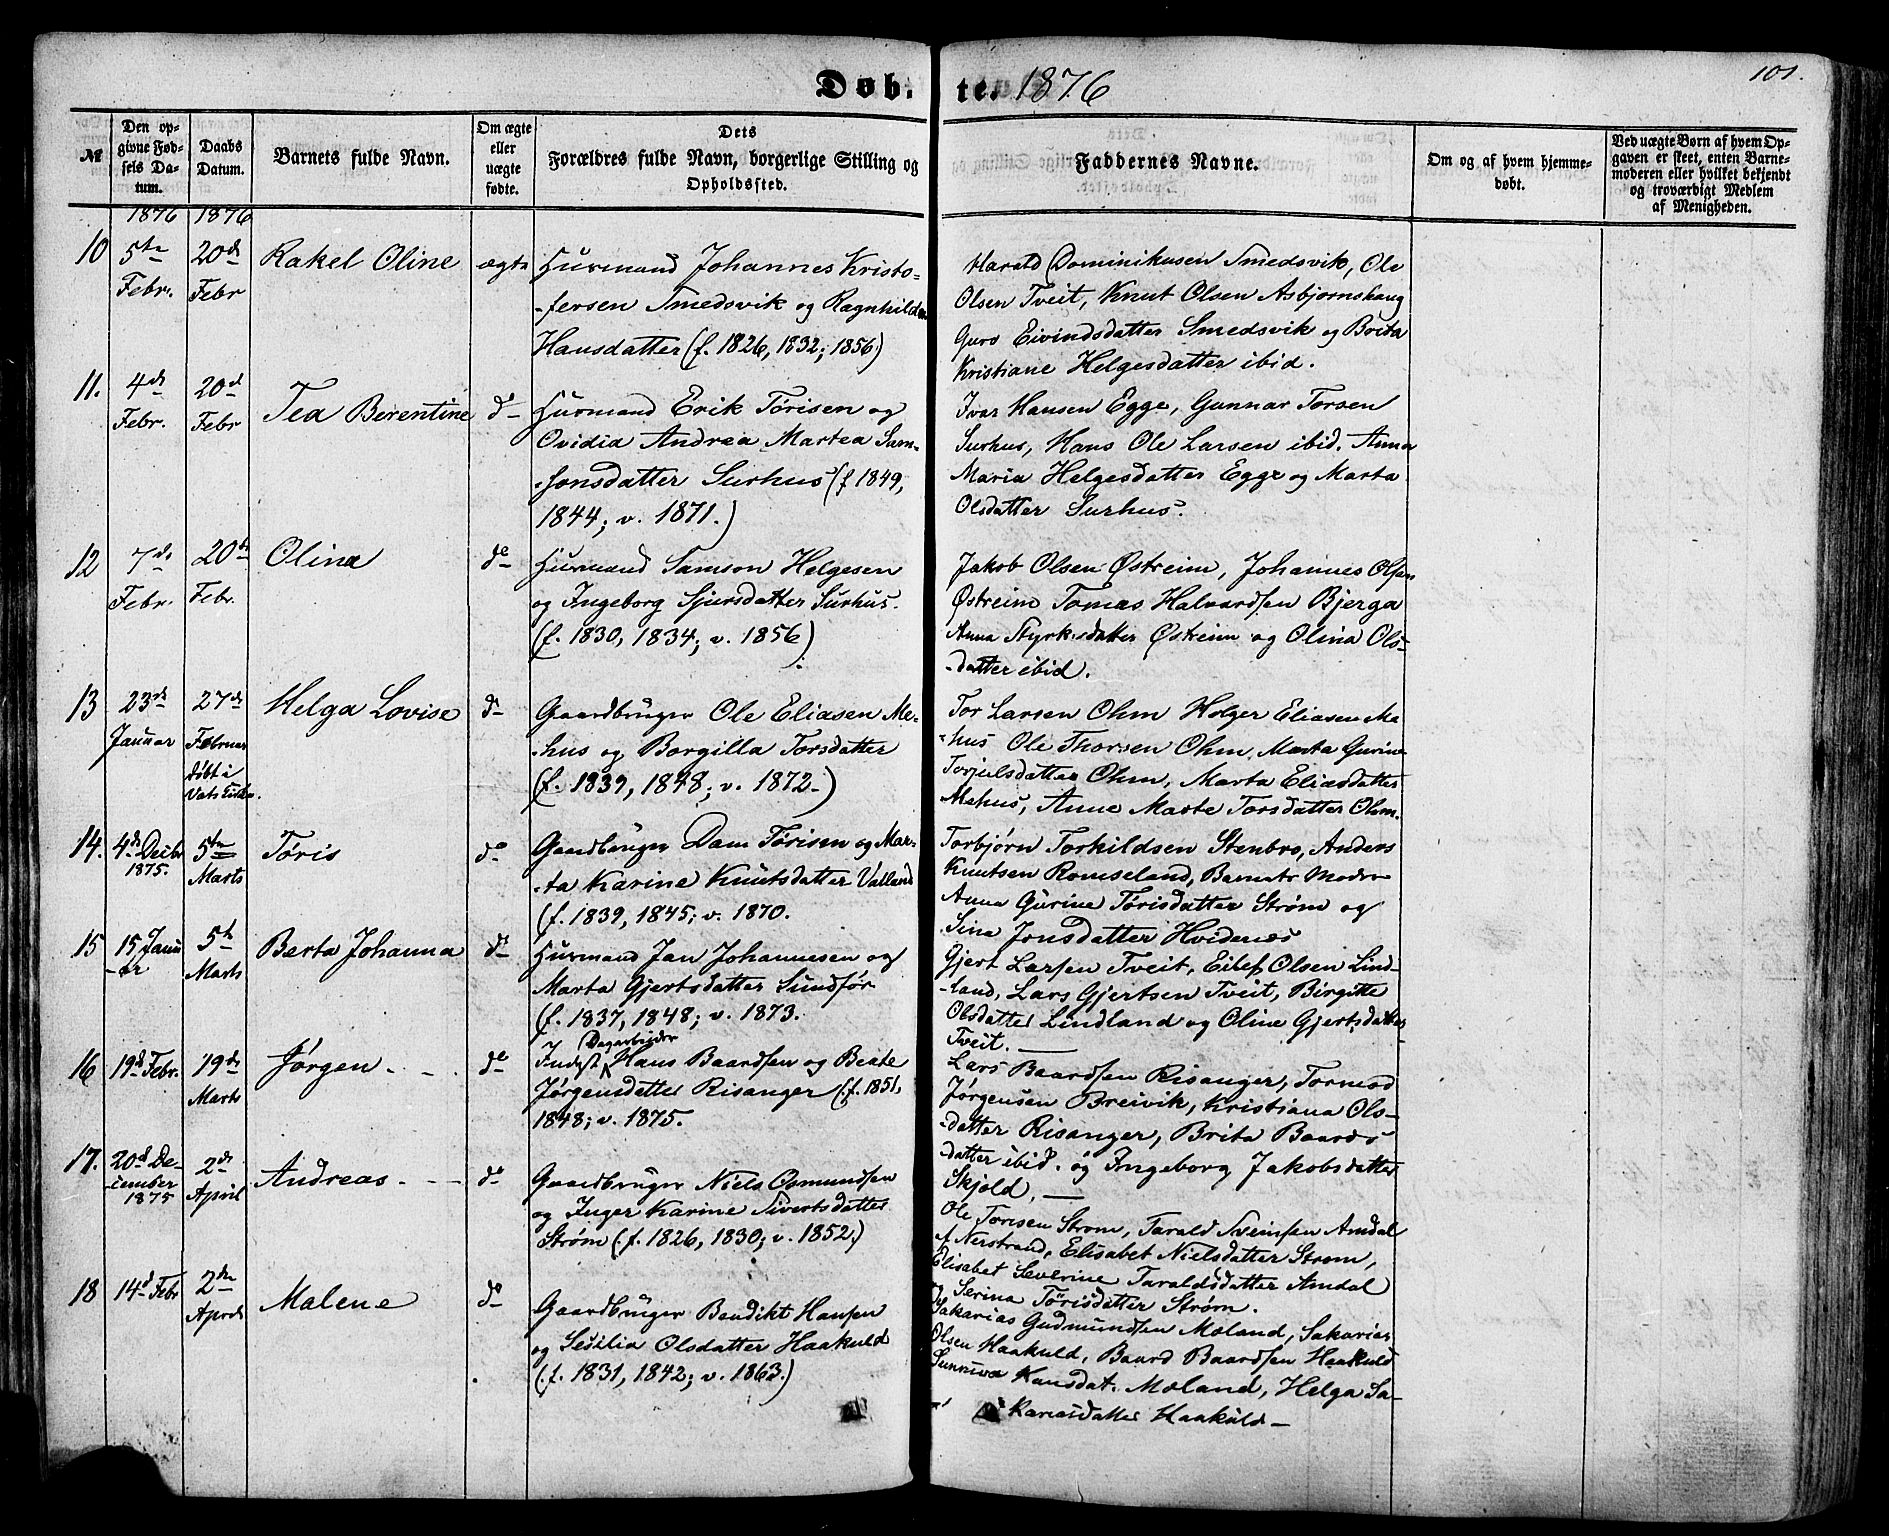 Døb- te. 1876
101.
№
Den opgivne Fødsels Datum.
Daabs Datum.
Barnets fulde Navn.
Om ægte eller uægte fødte.
Dets Forældres fulde Navn, borgerlige Stilling og Opholdssted.
Faddernes Navne.
Om og af hvem hjemmedøbt.
Ved uægte Børn af hvem Opgaven er skeet, enten Barnemoderen eller hvilket bekjendt og troværdigt Medlem af Menigheden.
1876 1876
10 5te Febr. 20de Febr Rakel Oline ægte
Huusmand Johannes Kristo-
-fersen Smedsvik og Ragnhilda
Hansdatter (f. 1826, 1832; 1856)
Harald Dominikusen Smedsvik, Ole
Olsen Tveit, Knut Olsen Asbjørnshaug
Guro Eivindsdatter Smedsvik og Brita
Kristiane Helgesdatter ibid.
11. 4de Febr. 20de Febr Tea Berentine do
Huusmand Erik Tørisen og
Ovidia Andrea Martea Sam-
-sonsdatter Surhus (f 1849,
1844; v. 1871.)
Ivar Hansen Egge, Gunnar Torsen
Surhus, Hans Ole Larsen ibid. Anna
Maria Helgesdatter Egge og Marta
Olsdatter Surhus.
12 7de Febr. 20de Febr. Olina do
Huusmand Samson Helgesen
og Ingeborg Sjursdatter Surhus.
(f. 1830, 1834; v. 1856)
Jakob Olsen Østreim, Johannes Olsen
Østreim Tomas Halvardsen Bjerga
Anna Styrksdatter Østreim og Olina Ols-
-datter ibid.
13 23de Januar 27de Februar døbt i Vats Kirke. Helga Lovise do
Gaardbruger Ole Eliasen Me-
-hus og Borgilla Torsdatter
(f. 1839, 1848; v. 1872.)
Tor Larsen Ohm Holger Eliasen Me-
-hus Ole Thorsen Ohm, Marta Gurine
Torjulsdatter Ohm, Marta Eliasdatter
Mehus, Anne Marte Torsdatter Ohm.
14. 4de Decbr 1875. 5te Marts Tøris do
Gaardbruger Dam Tørisen og Mar-
-ta Karine Knutsdatter Valland
(f. 1839, 1845; v. 1870.
Torbjørn Torkildsen Stenbro, Anders
Knutsen Romseland, Barnets Moder
Anna Gurine Tørisdatter Strøm og
Sina Jonsdatter Hvidenæs
15 15 Janu-ar 5te Marts Berta Johanna do
Huusmand Jan Johannesen og
Marta Gjertsdatter Sundfør
(f. 1837, 1848; v. 1873.
Gjert Larsen Tveit, Eilef Olsen Lind-
-land, Lars Gjertsen Tveit, Birgitte
Olsdatter Lindland og Oline Gjertsdatter
Tveit. —
16 19de Febr. 19de Marts Jørgen do
Dagarbeider
Inderst Hans Baardsen og Beate
Jørgensdatter Risanger (f. 1851,
1848; v. 1875.
Lars Baardsen Risanger, Tormod
Jørgensen Breivik, Kristiana Ols-
-datter Risanger, Brita Baards-
datter ibid. og Ingeborg Jakobsdatter
Skjold, —
17. 20de De-cember 1875 2de April Andreas do
Gaardbruger Niels Osmundsen
og Inger Karine Sivertsdatter
Strøm (f. 1826, 1830; v. 1852.)
Ole Torisen Strøm, Tarald Sveinsen Amdal
af Nerstrand, Elisabet Nielsdatter Strøm,
Elisabet Severine Taraldsdatter Amdal
og Serina Tørisdatter Strøm.
18 14de Febr 2den April Malene do
Gaardbruger Bendikt Hansen
og Sesilia Olsdatter Haakuld
(f. 1831, 1842; v. 1863.)
Sakarias Gudmundsen Moland, Sakarias
Olsen Haakuld, Baard Baardsen Haakuld
Sunniva Hansdat. Moland, Helga Sa-
kariasdatter Haakuld —